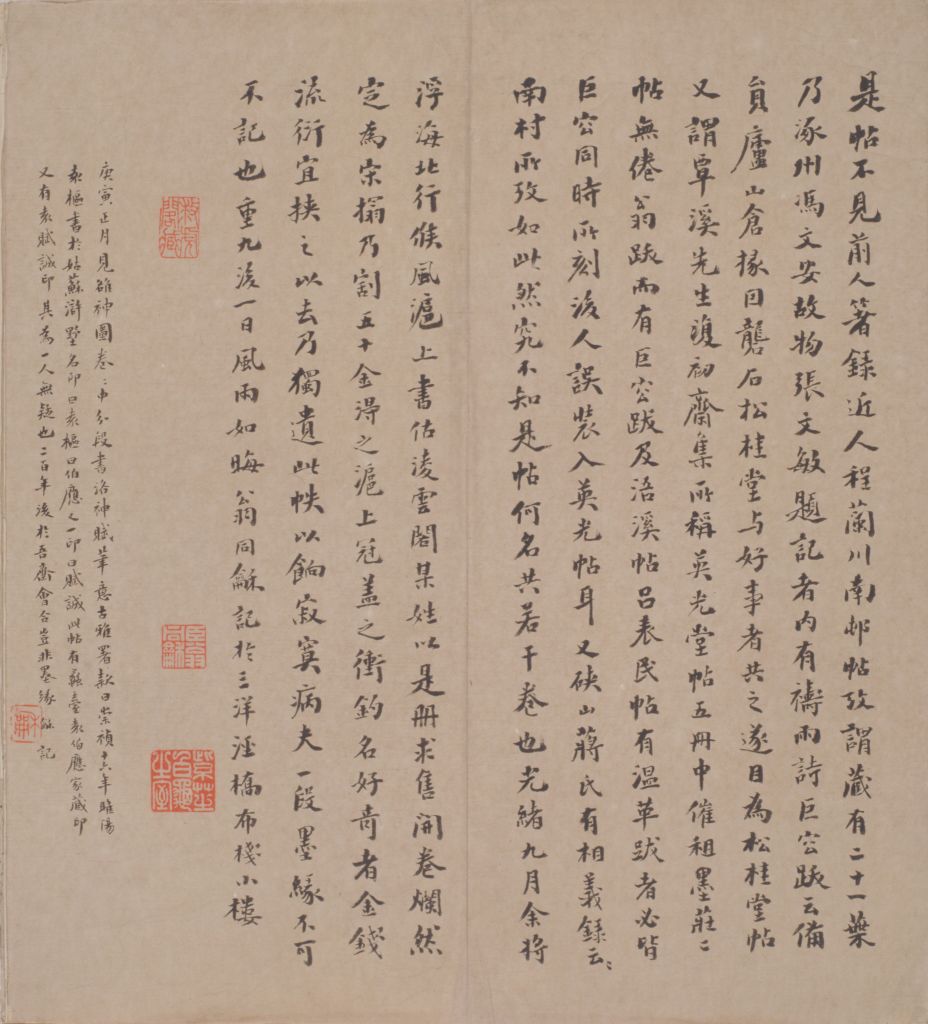 是帖不見前人箸錄近人程蘭川南邨帖攷謂藏有二十一葉
乃涿州馮文安故物張文敏題記者內有禱雨詩巨容跋云備
員廬山倉掾回礱石松桂堂与好事者共之遂目為松桂堂帖
又謂覃溪先生復初齋集所稱英光堂帖五冊中催租墨莊二
帖無倦翁跋而有巨容跋及浯溪帖呂表民帖有温革跋者必皆
巨容同時所刻後人誤裝入英光帖耳又硤山蔣氏有相義錄云云
南村所攷如此然究不知是帖何名共若干卷也光緒九月余將
浮海北行候風滬上書估淩雲閣某姓以是冊求售開卷爛然
定為宋搨乃割五十金得之滬上冠盖之衝釣名好奇者金錢
流衍宜挾之以去乃獨遺此帙以餉寂寞病夫一段墨緣不可
不記也重九後一日風雨如晦翁同龢記於三洋涇橋布棧小樓
庚寅正月見雒神圖卷卷中分段書洛神賦筆意古雅署款曰崇禎十六年睢陽
袁樞書於姑蘇滸墅名印曰袁樞曰伯應又一印曰賦誠此帖有蘇臺袁伯應家藏印
又有袁賦誠印其為一人無疑也二百年後於吾齋會合豈非墨緣 龢記